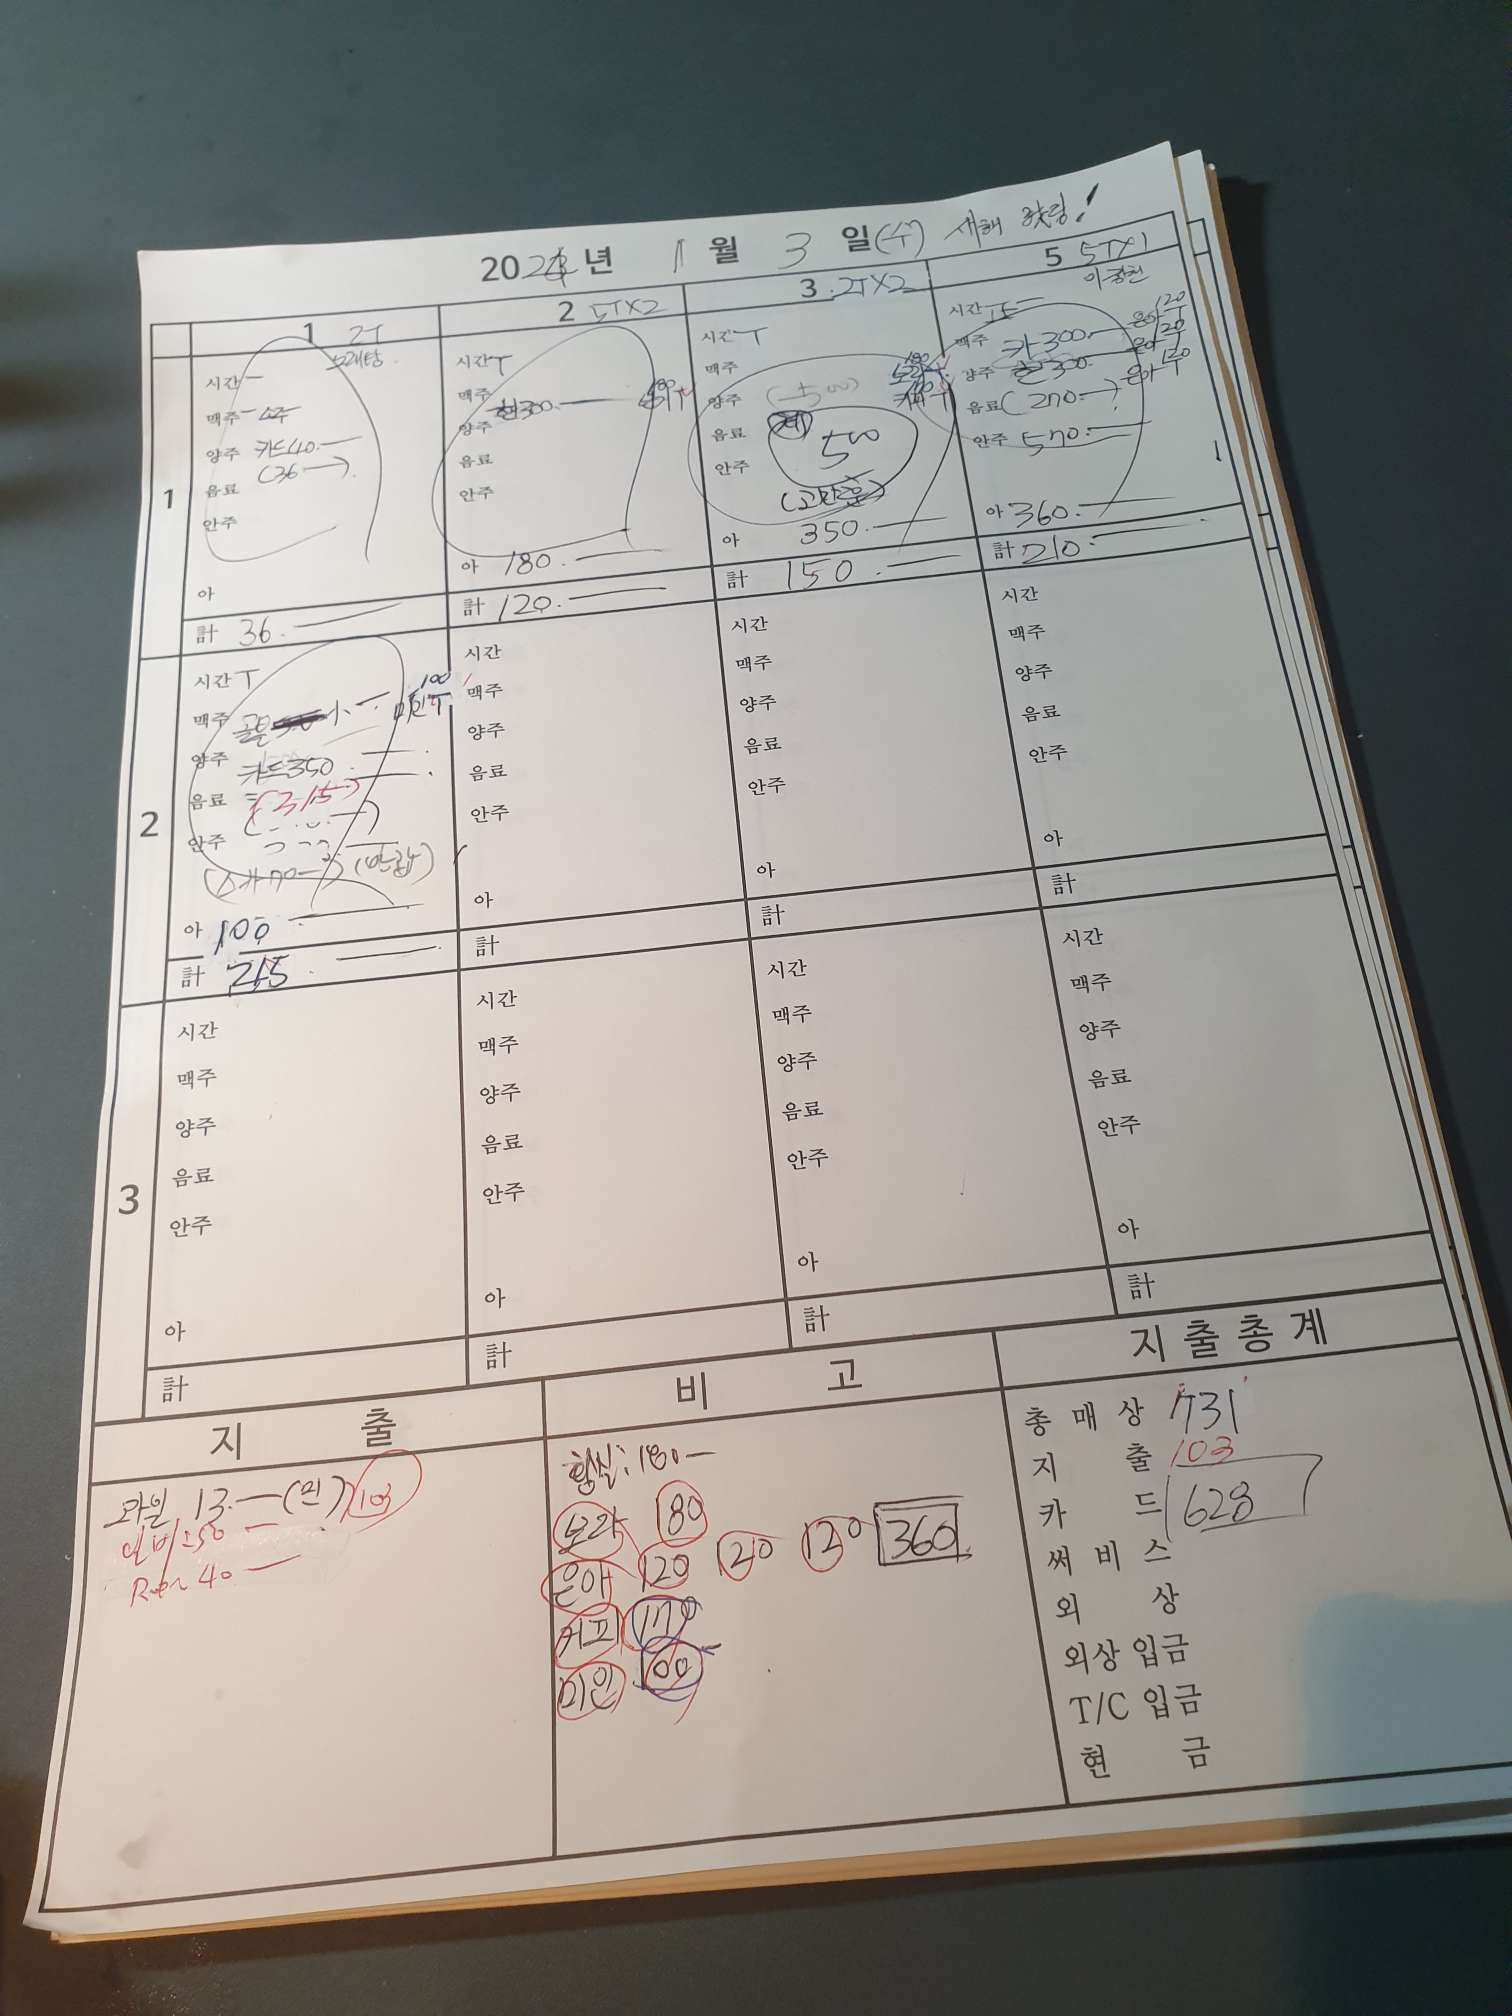 2024년 1월 3일(수) 새해
1 2T
2 5TX2
3 2TX2
5 5TX1
1
시간
맥주
양주 카드40
음료 (36)
안주
아
計 36.
시간 T
맥주
양주 현300.
음료
안주
아 180.
計 120.
시간 T
맥주
양주 (500)
음료 500
안주
아 350.
計 150.
시간
맥주 카300 은아 120
양주 현300. 은아 120
음료 (270) 은아 120
안주 570.
아 360.
計 210.
2
시간 T
맥주 100
양주 카드350.
음료 (315)
안주
아 100
計 215.
시간
맥주
양주
음료
안주
아
計
시간
맥주
양주
음료
안주
아
計
시간
맥주
양주
음료
안주
아
計
3
시간
맥주
양주
음료
안주
아
計
시간
맥주
양주
음료
안주
아
計
시간
맥주
양주
음료
안주
아
計
시간
맥주
양주
음료
안주
아
計
지 출
과일 13. (민) 103
50
40
비 고
180
보라 80
은아 120 120 120 360
커피 170
미인 100
지출총계
총 매 상 731
지 출 103
카 드 628
써 비 스
외 상
외상 입금
T/C 입금
현 금